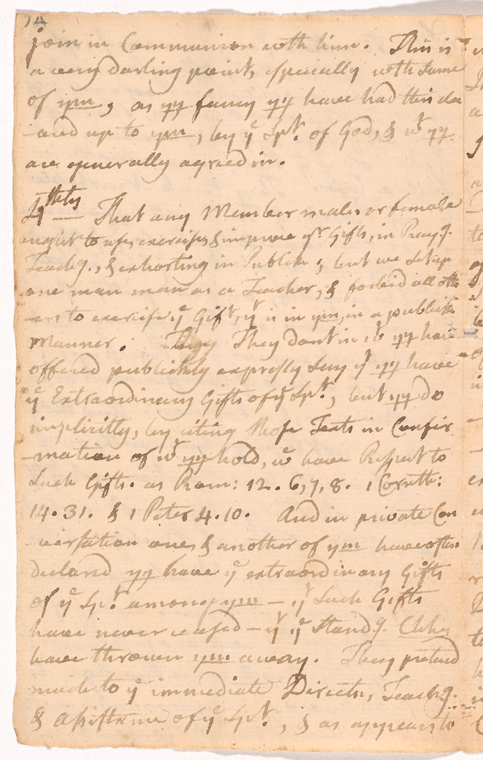 14
join in Communion with him. This is
a very darling point, especially with some
of ym, as yy fancy yy have had this
up to ym, by ye Spt. of God, & wt yy
are generally agreed in.
That any Member male or female
ought to use exercise & improve yr Gifts, in Prayg.
Teachg., & exhorting in Publick; but we set up
one man as a Teacher, & forbid all oth
ers to exercise ye Gift, yt is in ym, in a publick
Manner. They dont in wt yy have
offered publickly expressly say yt yy have
ye Extraordinary Gifts of ye Spt., but yy do
implicitly, by citing those Texts in Confir
mation of wt yy hold, wc have Respect to
such Gifts. as Rom: 12. 6, 7, 8. 1 Corinth:
14. 31. & 1 Peter 4. 10. And in private Con
versation one & another of ym have often
declared yy have ye extraordinary Gifts
of ye Spt. among ym — yt such Gifts
have never ceased — yt ye Standg. Chhs
have thrown ym away. They pretend
much to ye immediate Directn, Teachg.
& Assistance of ye Spt., & as appears to